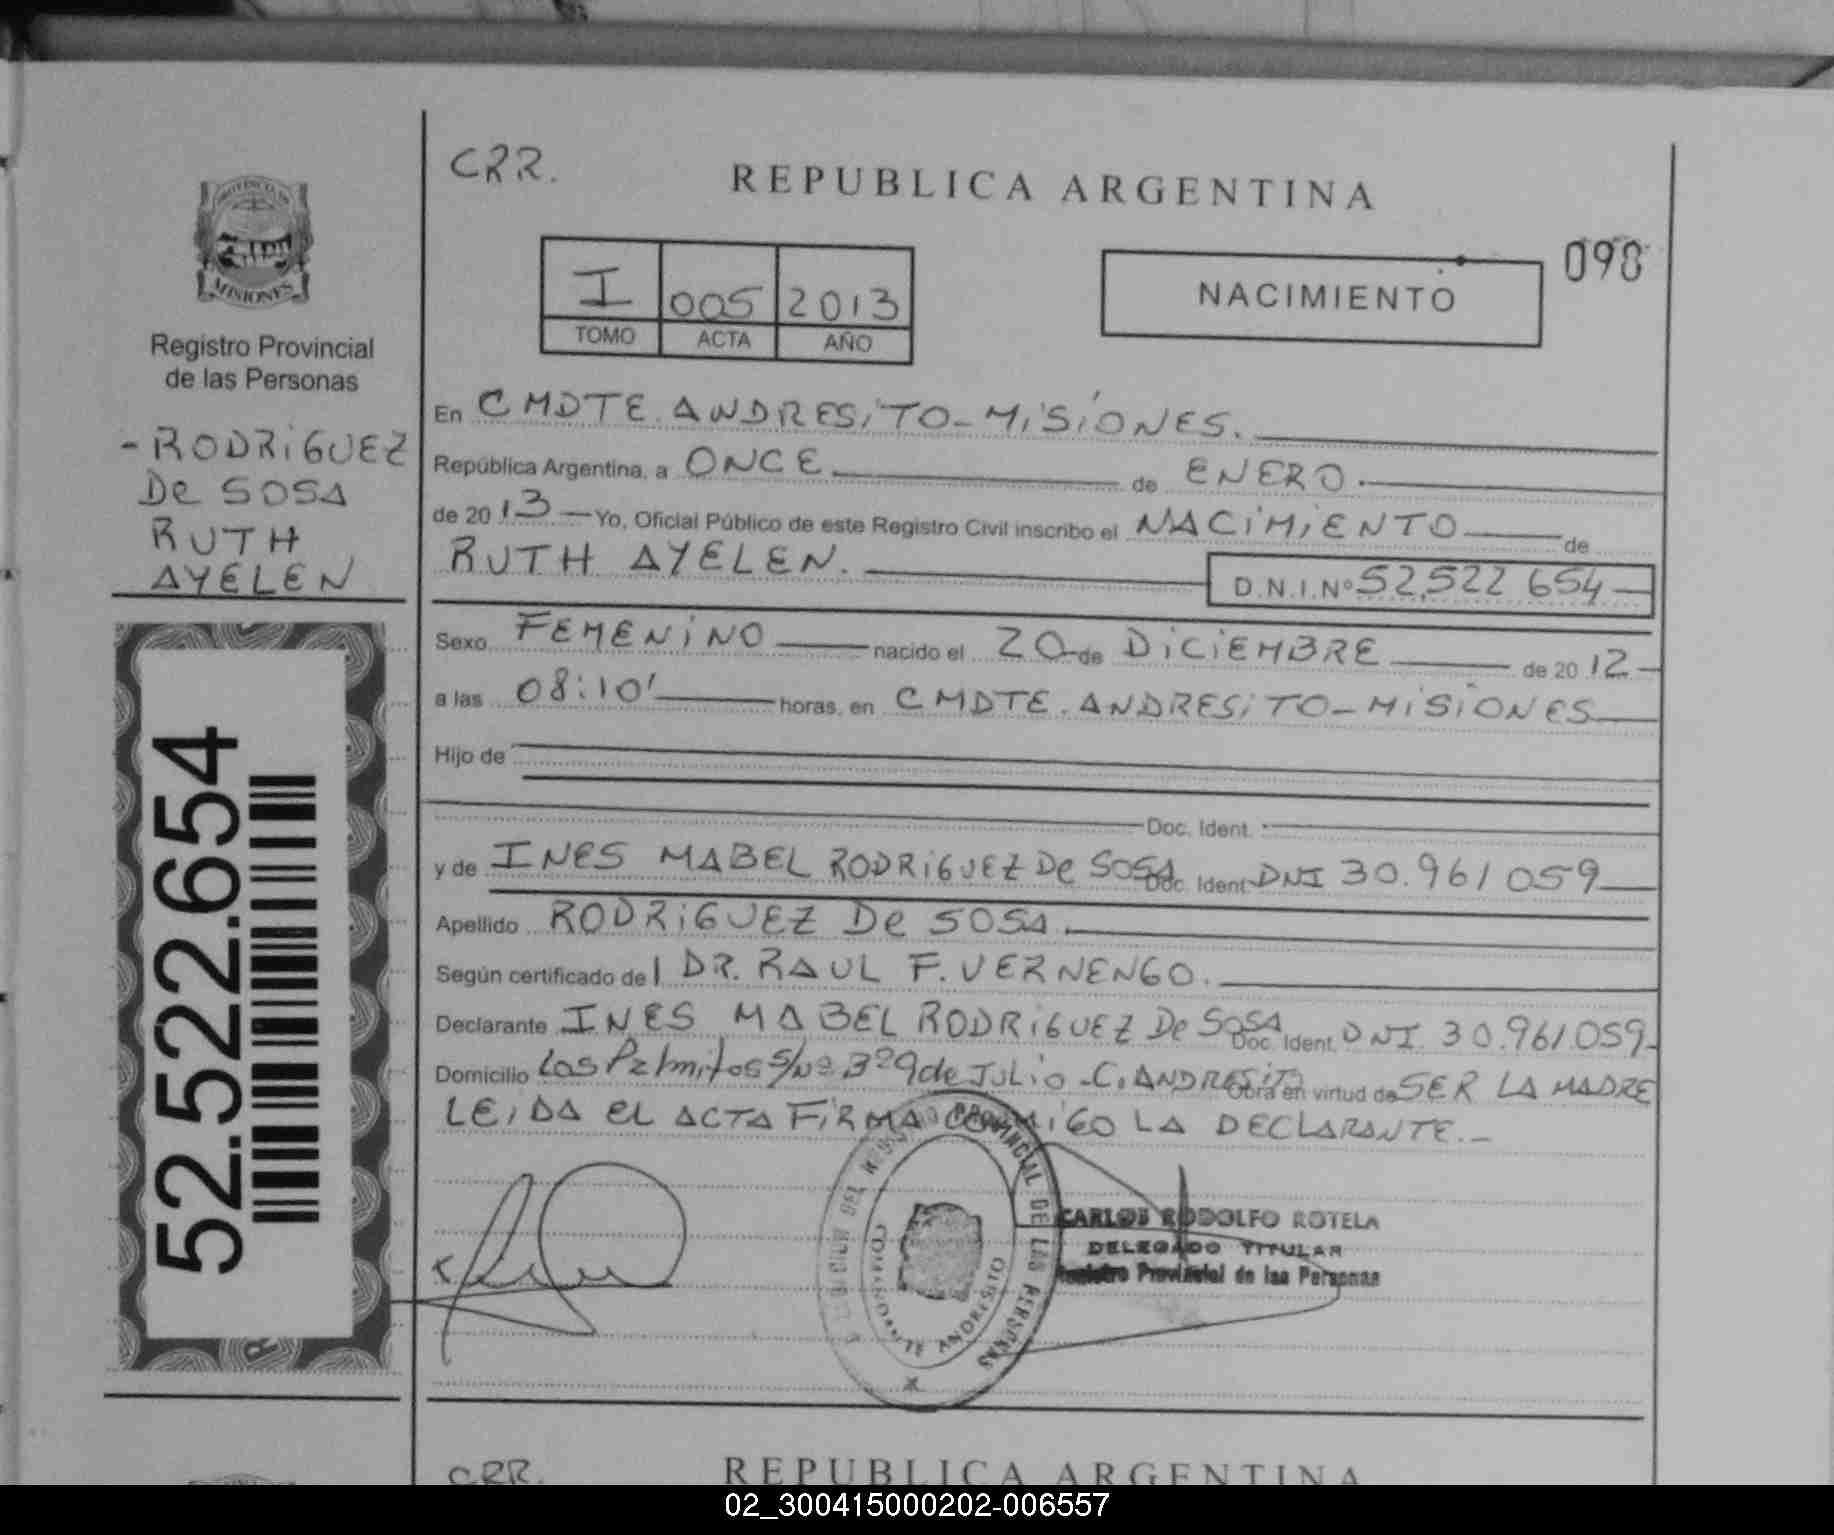 CRR.
REPUBLICA ARGENTINA
PROVINCIA DE
MISIONES
Registro Provincial
de las Personas
- RODRIGUEZ
De SOSA
RUTH
AYELEN
52.522.654
R
I 005 2013
TOMO ACTA AÑO
NACIMIENTO
098
En CMDTE. ANDRESITO - MISIONES.
República Argentina, a ONCE de ENERO.
de 2013 Yo, Oficial Público de este Registro Civil inscribo el NACIMIENTO de
RUTH AYELEN. D.N.I.Nº 52.522 654
Sexo FEMENINO nacido el 20 de DICIEMBRE de 2012
a las 08:10' horas, en CMDTE. ANDRESITO - MISIONES
Hijo de
Doc. Ident.
y de INES MABEL RODRIGUEZ De SOSA Doc. Ident. DNI 30.961 059
Apellido RODRIGUEZ De SOSA.
Según certificado del DR. RAUL F. VERNENGO.
Declarante INES MABEL RODRIGUEZ De SOSA Doc. Ident. DNI 30.961.059
Domicilio Las Palmitos S/Nº Bº 9 de JULIO - C. ANDRESITO Obra en virtud de SER LA MADRE
LEIDA EL ACTA FIRMA CONMIGO LA DECLARANTE. -
PROVINCIAL DE LAS PERSONAS
COMANDANTE ANDRESITO
CARLOS RODOLFO ROTELA
DELEGADO TITULAR
Registro Provincial de las Personas
CRR.
REPUBLICA ARGENTINA
02_300415000202-006557